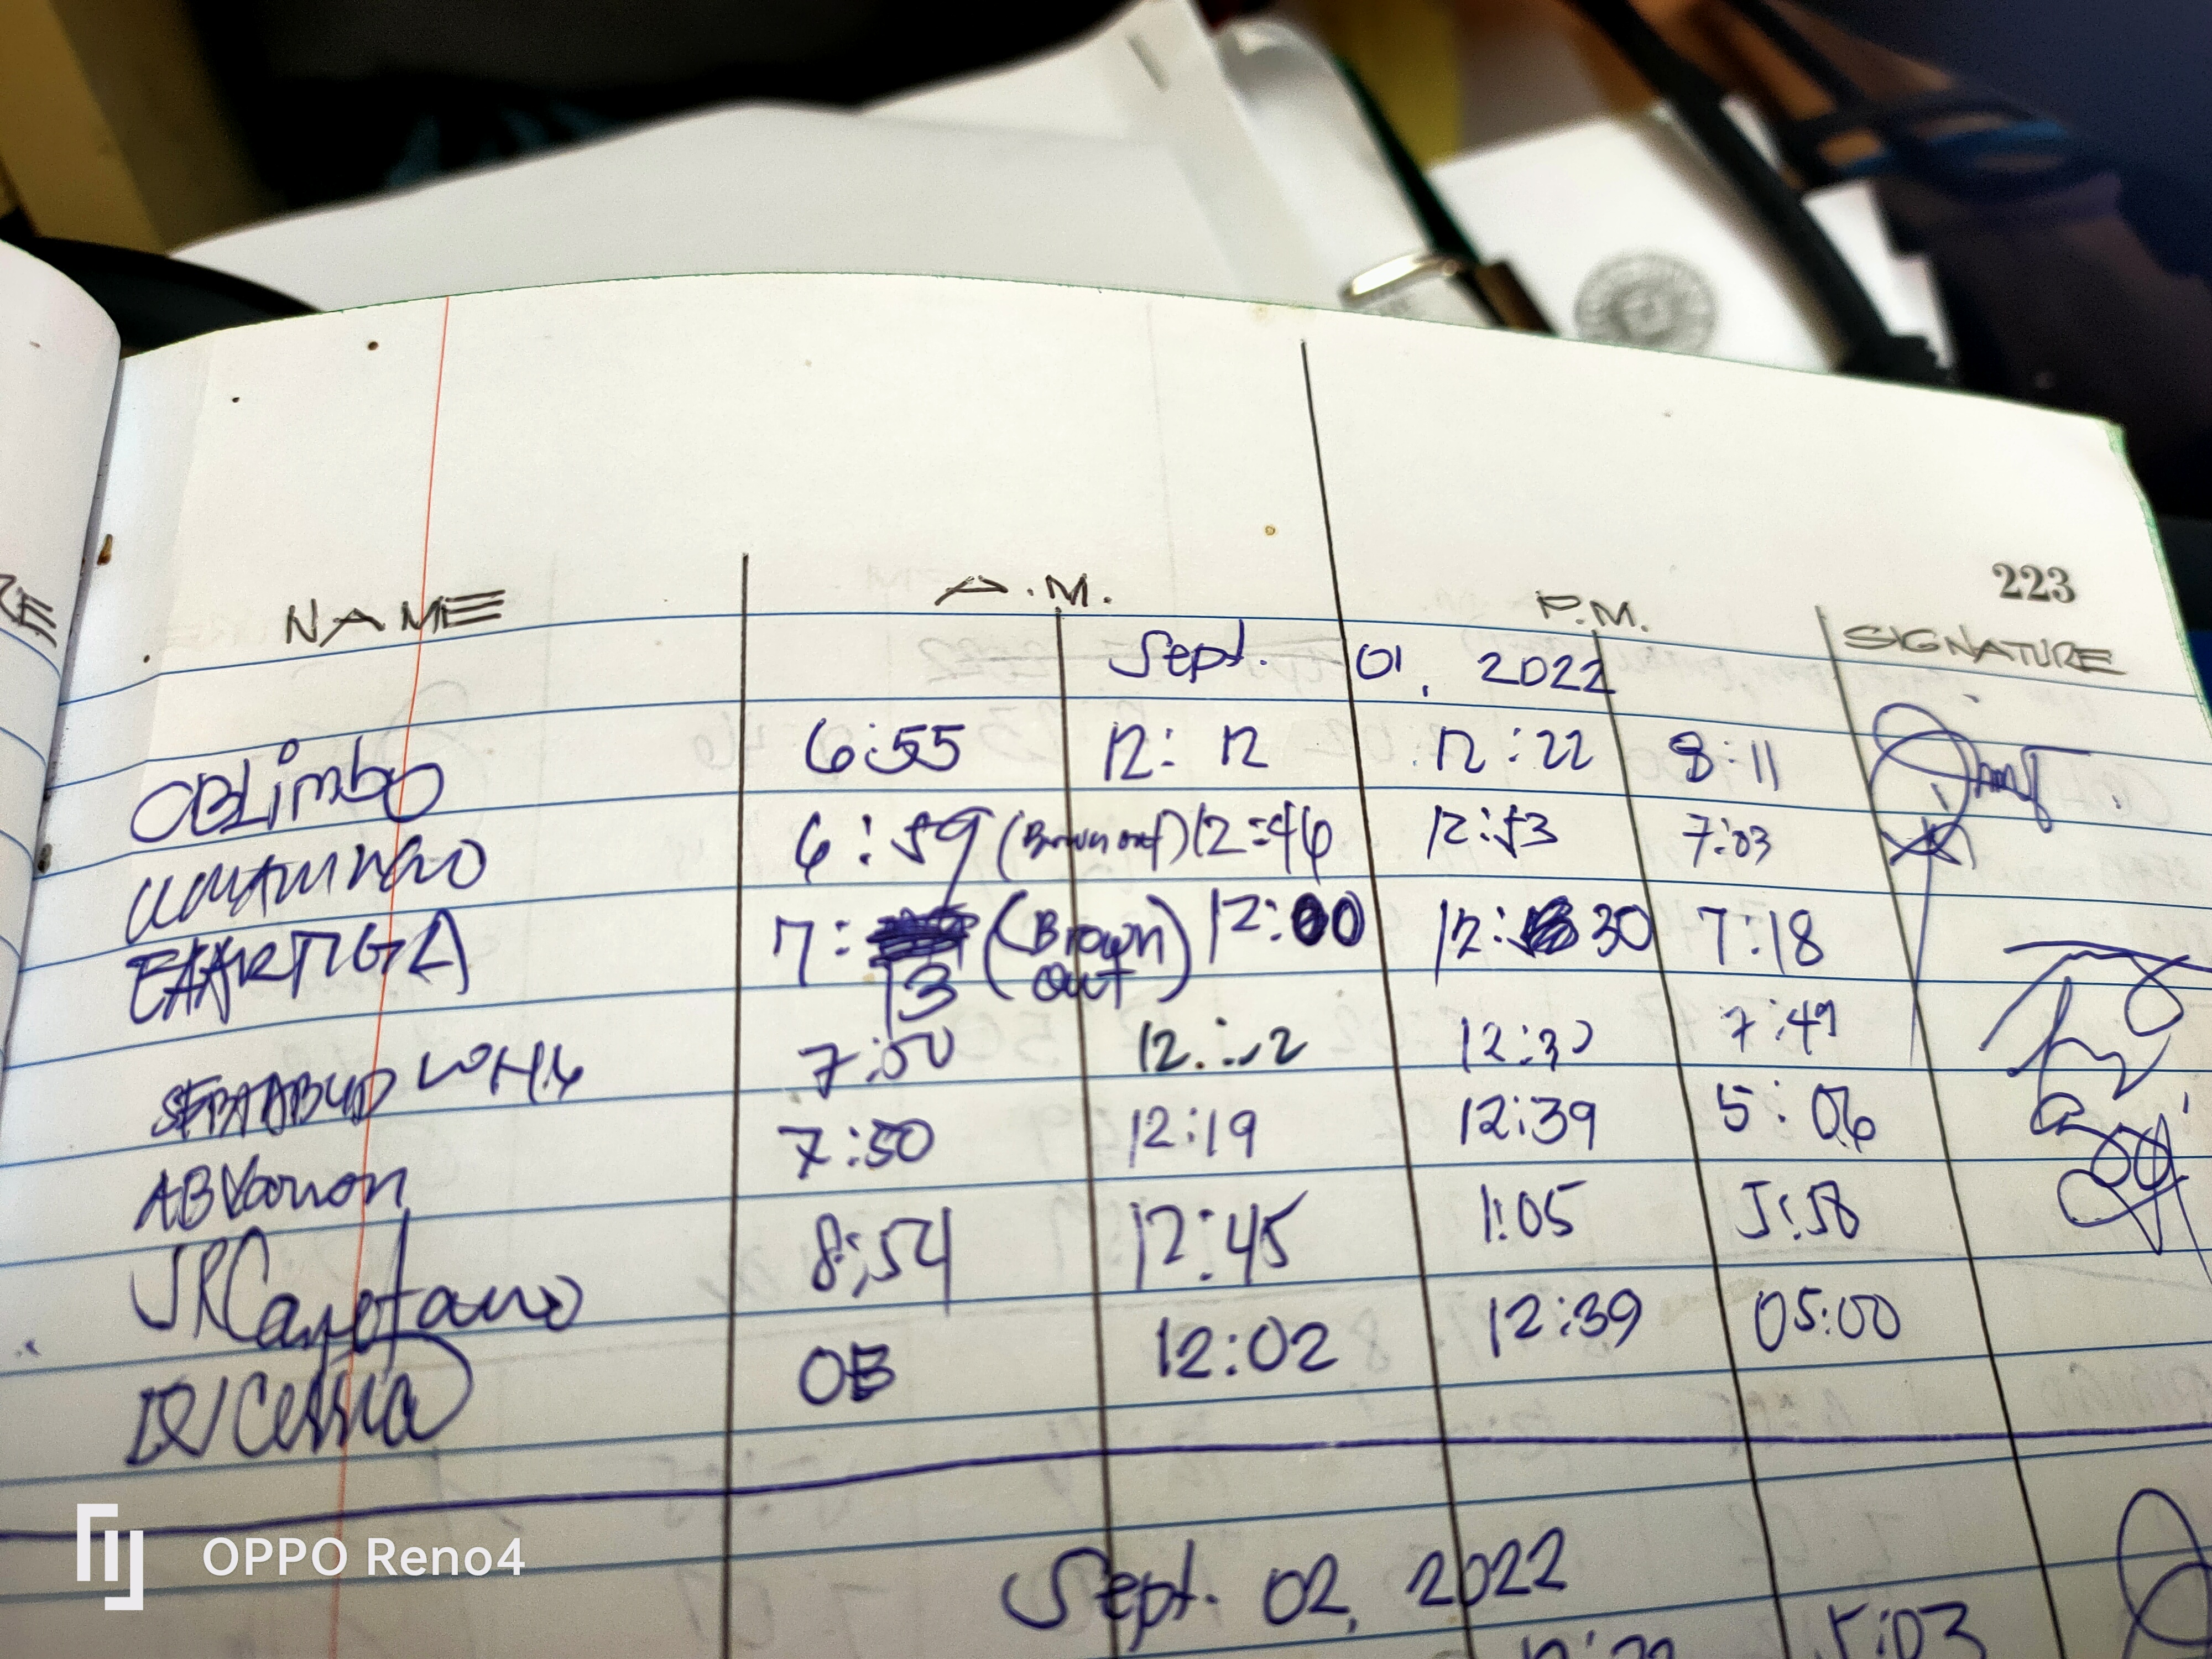 RE
NAME A.M. P.M. SIGNATURE 223
Sept. 01, 2022
OBLimbo 6:55 12:12 12:22 8:11
6:59 (Brown out) 12:46 12:53 7:03
EAARTIGA 7:13 (Brown out) 12:00 12:30 7:18
7:50 12:12 12:30 7:49
7:50 12:19 12:39 5:06
JRCayetano 8:54 12:45 1:05 5:58
OB 12:02 12:39 05:00
Sept. 02, 2022
5:03
OPPO Reno4